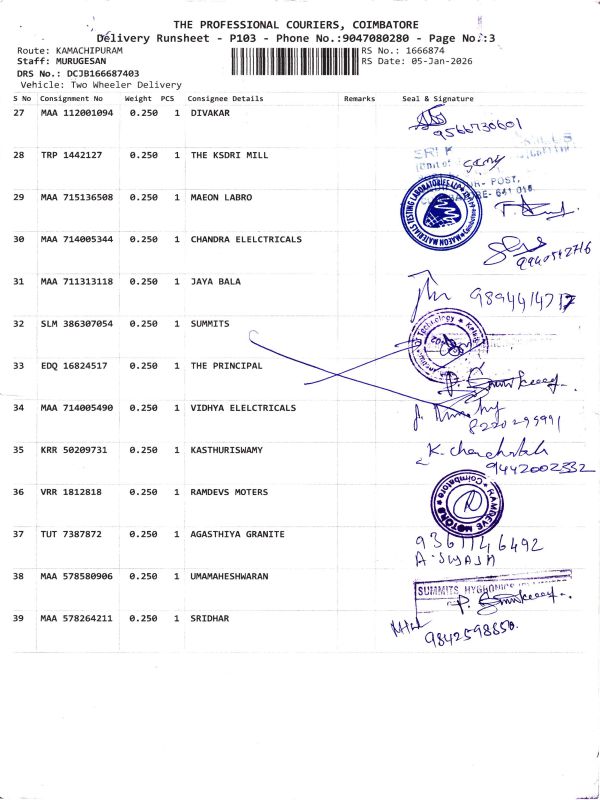 THE PROFESSIONAL COURIERS, COIMBATORE
Delivery Runsheet - P103 - Phone No.:9047080280 - Page No.:3
Route: KAMACHIPURAM
RS No.: 1666874
Staff: MURUGESAN
RS Date: 05-Jan-2026
DRS No.: DCJB166687403
Vehicle: Two Wheeler Delivery
S No Consignment No Weight PCS Consignee Details Remarks Seal & Signature
27 MAA 112001094 0.250 1 DIVAKAR
9566730601
28 TRP 1442127 0.250 1 THE KSDRI MILL
29 MAA 715136508 0.250 1 MAEON LABRO
MAEON MATERIALS TESTING LABORATORIES LLP
30 MAA 714005344 0.250 1 CHANDRA ELELCTRICALS
31 MAA 711313118 0.250 1 JAYA BALA
32 SLM 386307054 0.250 1 SUMMITS
33 EDQ 16824517 0.250 1 THE PRINCIPAL
34 MAA 714005490 0.250 1 VIDHYA ELELCTRICALS
8220295991
35 KRR 50209731 0.250 1 KASTHURISWAMY
9442002332
36 VRR 1812818 0.250 1 RAMDEVS MOTERS
Coimbatore
37 TUT 7387872 0.250 1 AGASTHIYA GRANITE
9361146492
38 MAA 578580906 0.250 1 UMAMAHESHWARAN
SUMMITS HYGRONICS
39 MAA 578264211 0.250 1 SRIDHAR
9842598850